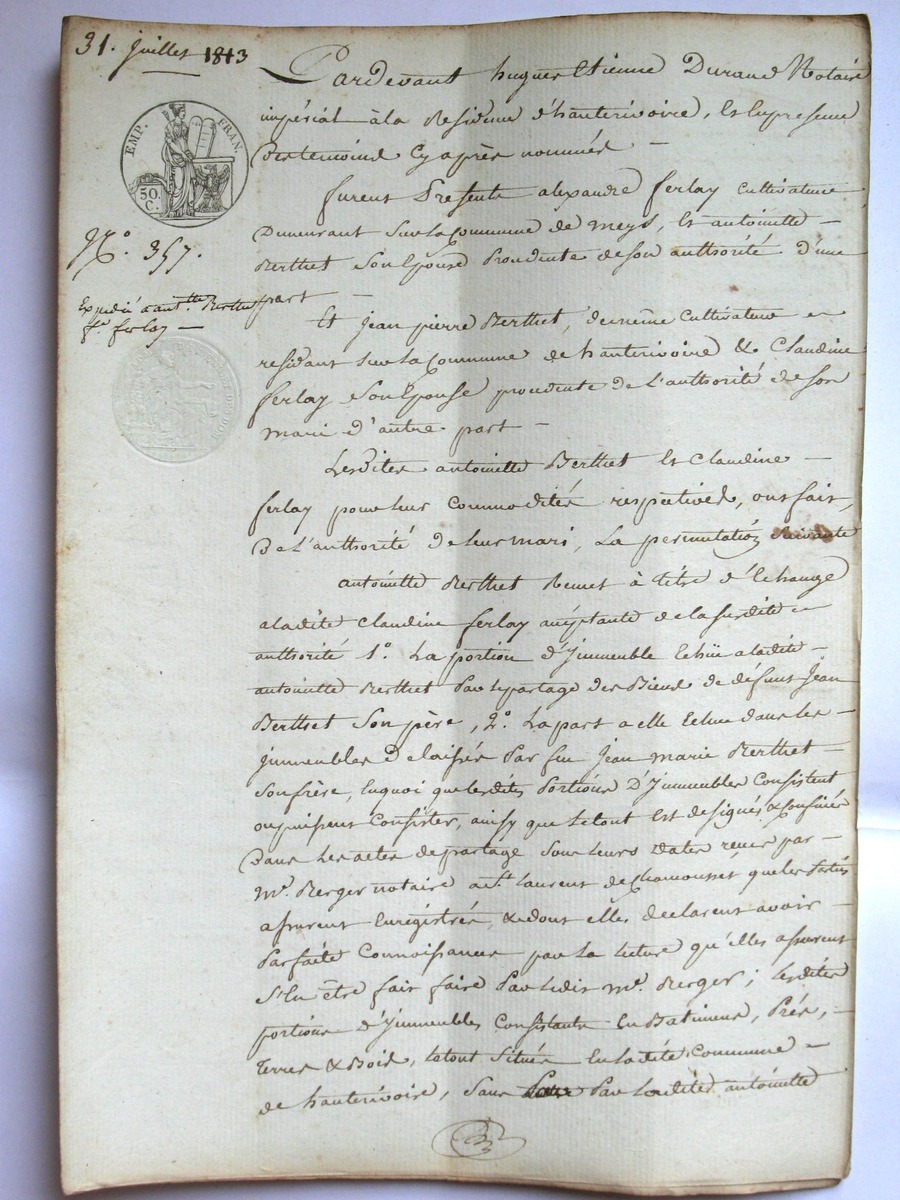 31. juillet 1813
EMP. FRAN.
50
C.
N.º 357.
Expedié a ant.tte Berthet
f.e ferlay —
Pardevant hugues Etienne Durand Notaire
impérial à la Residence d'hauterivoire, Et En presence
des temoins Cy après nommés —
furent Presents alexandre ferlay Cultivateur
Demeurant Sur la Commune de meys, Et antoinette —
Berthet Son Epouse Procedente de son authorité d'une
part —
Et Jean pierre Berthet, de même Cultivateur
residant Sur la Commune de hauterivoire & Claudine
ferlay Son Epouse procedente de l'authorité de son
mari d'autre part —
Lesdites antoinette Berthet Et Claudine —
ferlay pour leur Commodités respectives, ont fait,
De l'authorité de leur mari, La permutation Suivante
antoinette Berthet Remet à titre d'Echange
a ladite Claudine ferlay acceptante de la susdite
authorité 1.º La portion d'Immeuble Echüe a ladite —
antoinette Berthet Par le partage des Biens de défunt Jean
Berthet Son père, 2.º La part a elle Echue dans les —
Immeubles délaissés Par feu Jean Marie Berthet —
Son frère, En quoi que lesdites Portions D'Immeubles Consistent
ou puissent Consister, ainsy que le tout Est designés & Confinés
Dans les actes de partage Sous leurs dates reçus par —
M.e Berger notaire a S.t Laurent de Chamousset que les Parties
assurent Enregistrés, & dont elles declarent avoir —
Parfaite Connoissance par la lecture qu'elles assurent
S'En être fait faire Par ledit M.e Berger; lesdites
portions d'Immeubles Consistants En Batiments, Prés, —
Terres & Bois, le tout Situés En ladite Commune —
de hauterivoire, Sans Par ladite antoinette